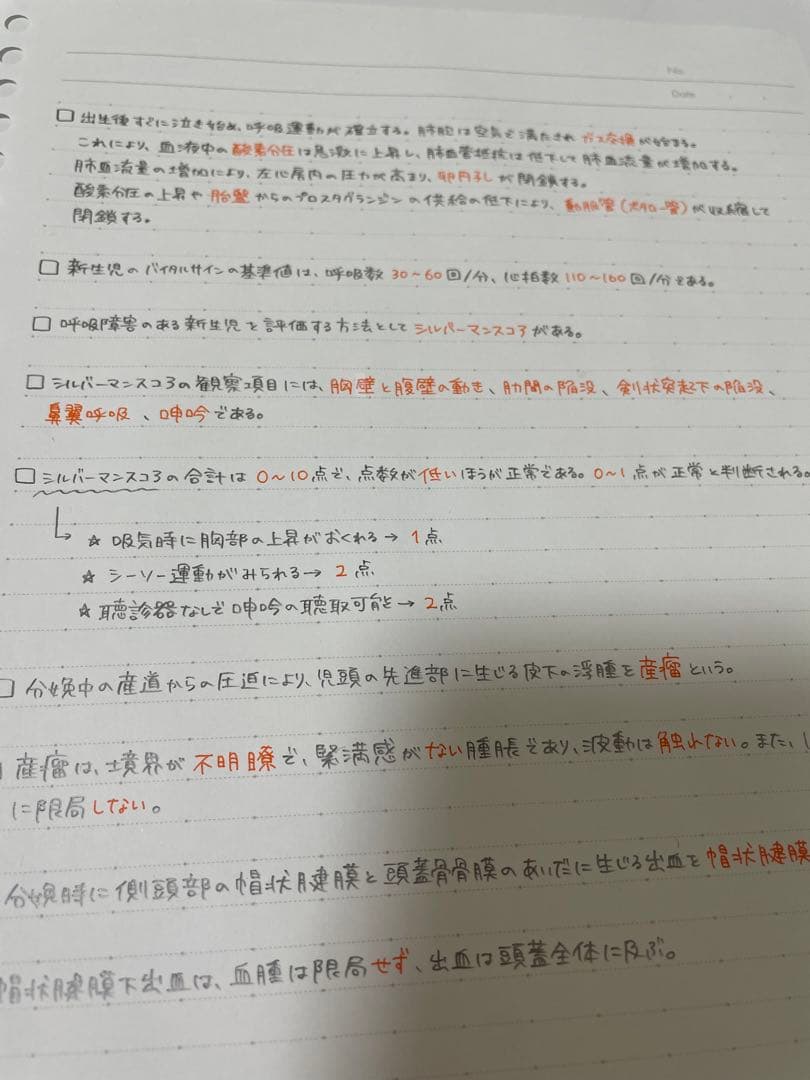 No.
Date
□ 出生後すぐに泣き始め、呼吸運動が確立する。肺胞は空気で満たされ ガス交換が始まる。
これにより、血液中の酸素分圧は急激に上昇し、肺血管抵抗は低下して肺血流量が増加する。
肺血流量の増加により、左心房内の圧力が高まり、卵円孔が閉鎖する。
酸素分圧の上昇や胎盤からのプロスタグランジンの供給の低下により、動脈管(ボタロー管)が収縮して
閉鎖する。
□ 新生児のバイタルサインの基準値は、呼吸数 30~60回/分、心拍数 110~160回/分である。
□ 呼吸障害のある新生児を評価する方法としてシルバーマンスコアがある。
□ シルバーマンスコアの観察項目には、胸壁と腹壁の動き、肋間の陥没、剣状突起下の陥没、
鼻翼呼吸、呻吟である。
□ シルバーマンスコアの合計は 0~10点で、点数が低いほうが正常である。0~1点が正常と判断される。
☆ 吸気時に胸部の上昇がおくれる→ 1点
☆ シーソー運動がみられる→ 2点
☆ 聴診器なしで呻吟の聴取可能→ 2点
□ 分娩中の産道からの圧迫により、児頭の先進部に生じる皮下の浮腫を産瘤という。
産瘤は、境界が不明瞭で、緊満感がない腫脹であり、波動は触れない。また、
に限局しない。
分娩時に側頭部の帽状腱膜と頭蓋骨骨膜のあいだに生じる出血を帽状腱膜
帽状腱膜下出血は、血腫は限局せず、出血は頭蓋全体に及ぶ。